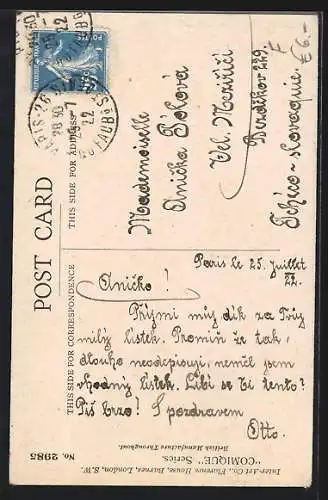 POST CARD
THIS SIDE FOR CORRESPONDENCE
THIS SIDE FOR ADDRESS
POSTES
PARIS
20 30
22
Mademoiselle
Anička
Vel. Meziříčí
Bezděkov 229.
Tchéco-slovaquie.
F
€6.-
Paris le 25. Juillet
22.
Aničko!
Přijmi můj dík za Tvůj
milý lístek. Promiň že tak
dlouho neodepisuji, neměl jsem
vhodný lístek. Líbí se Ti tento?
Piš brzo! S pozdravem
Otto.
Inter-Art Co., Florence House, Barnes, London, S.W.
"COMIQUE" Series.
British Manufacture Throughout.
No. 2985